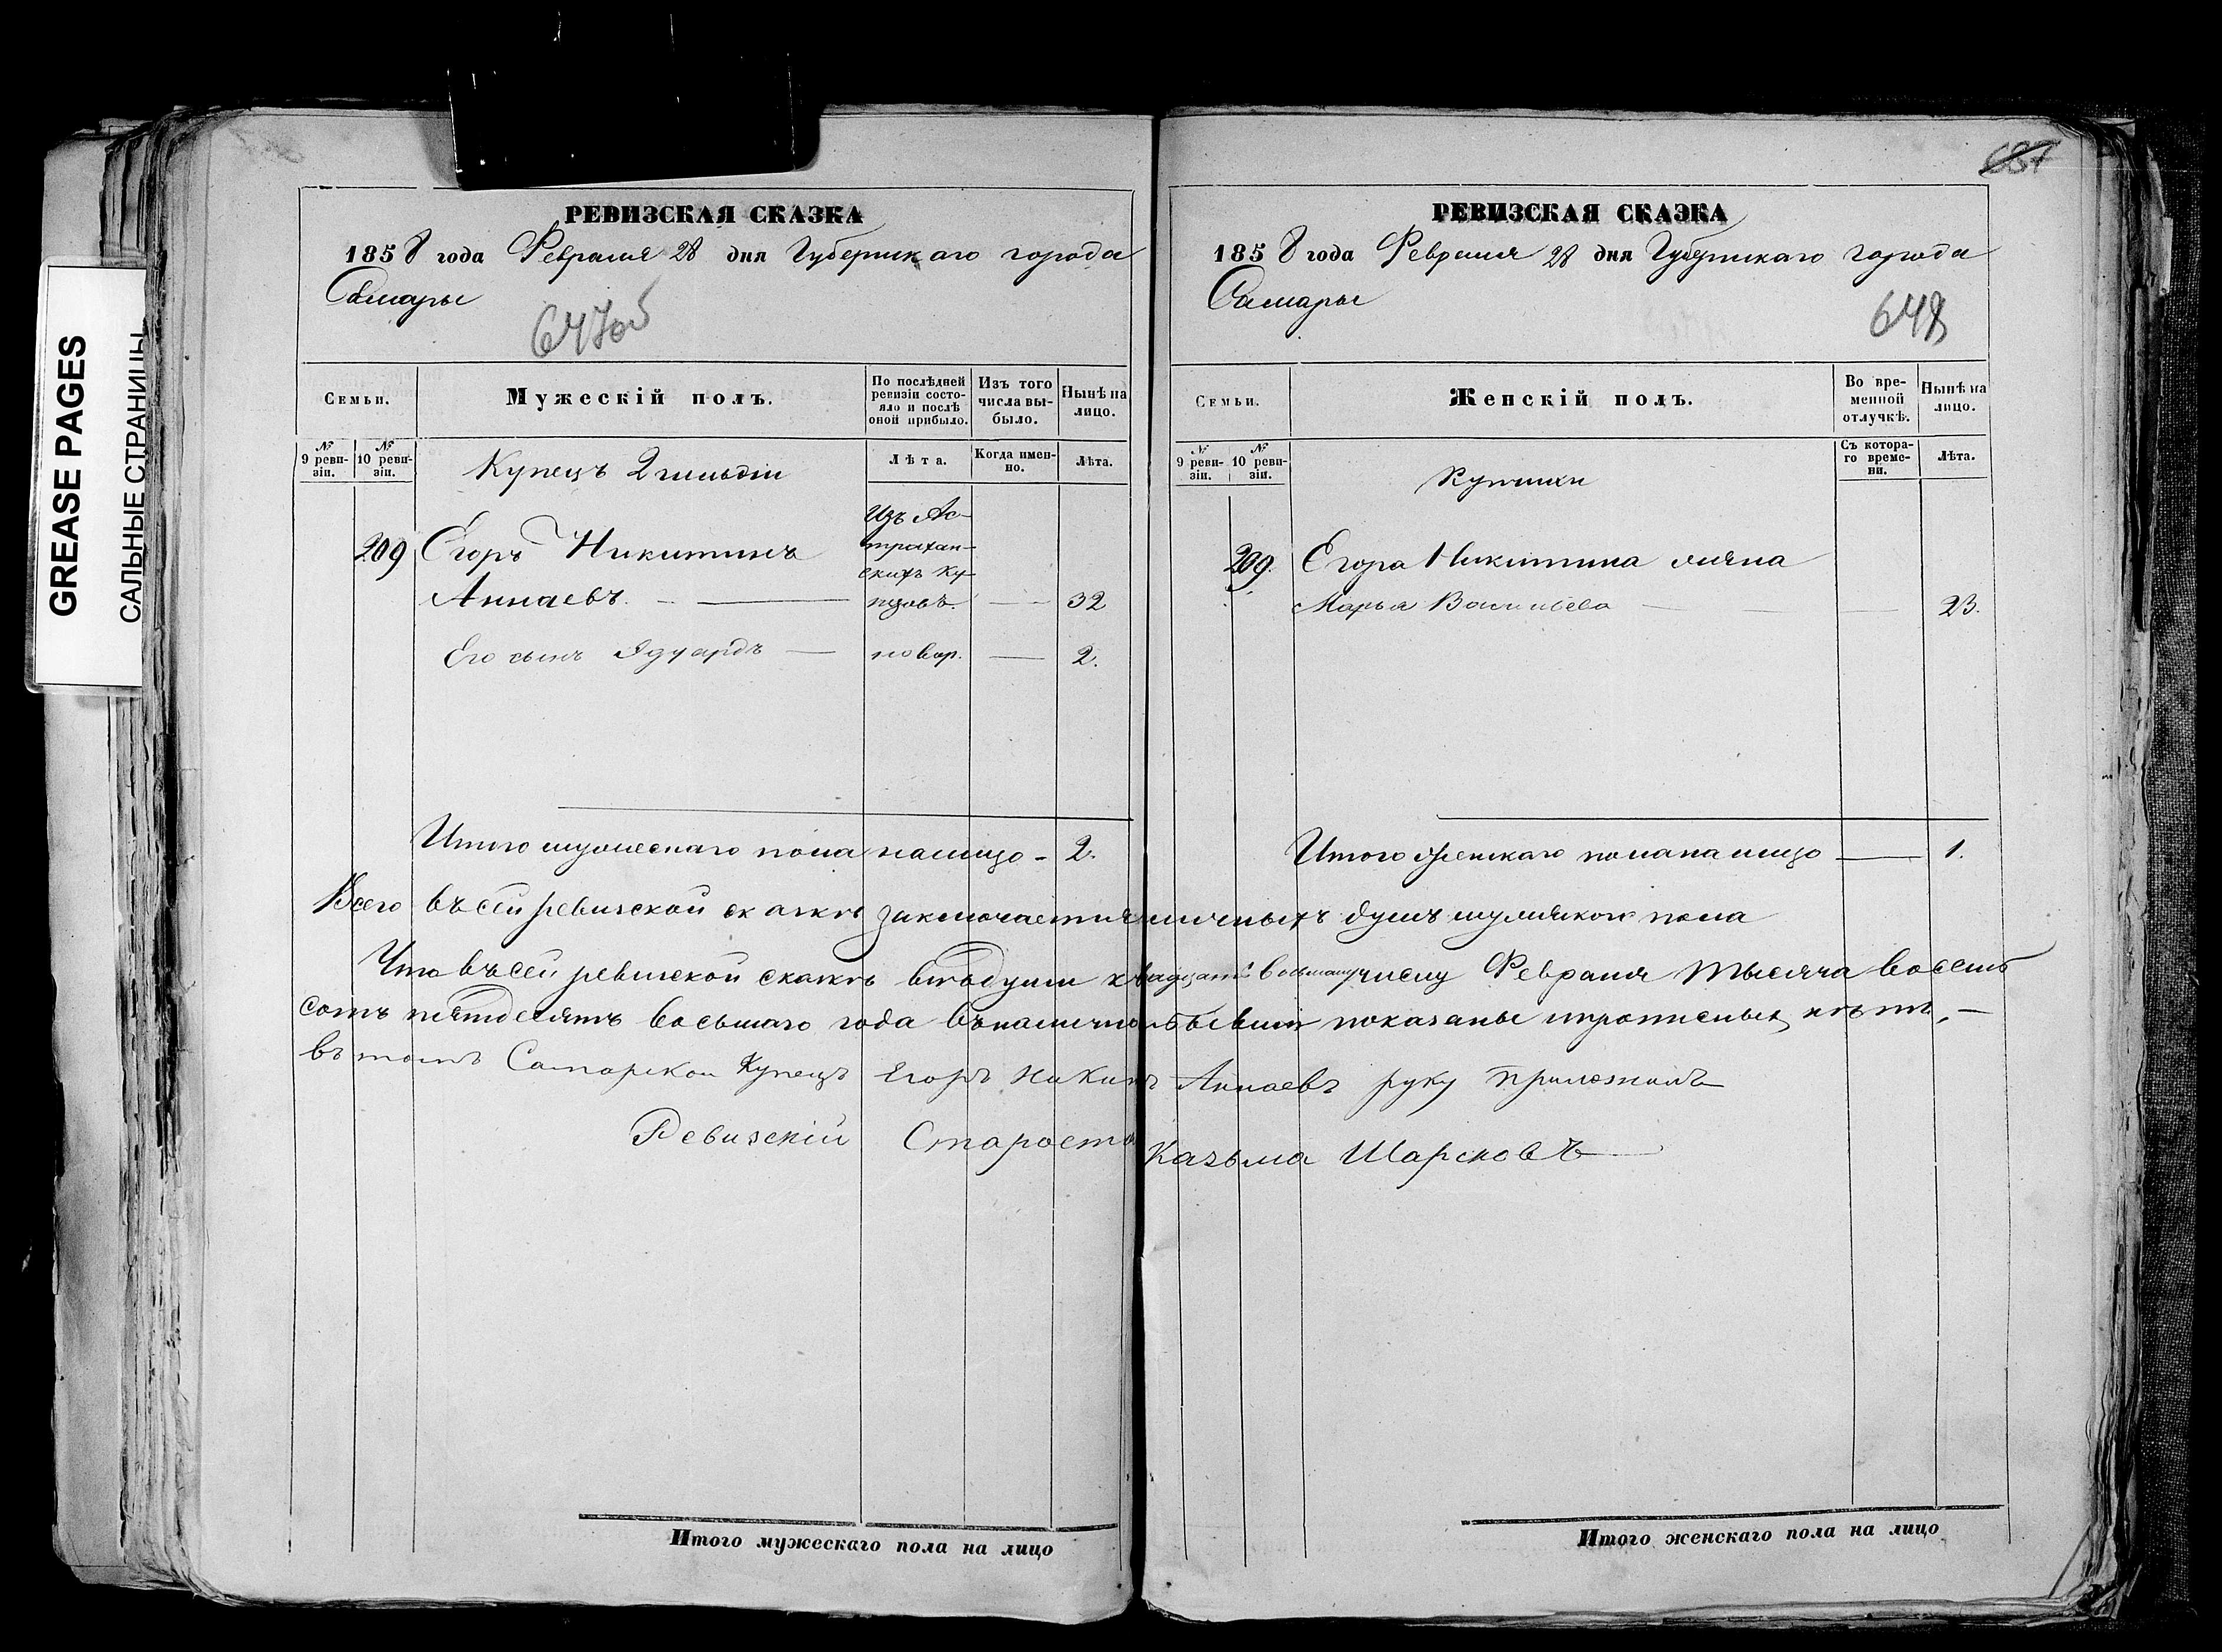 GREASE PAGES
САЛЬНЫЕ СТРАНИЦЫ
РЕВИЗСКАЯ СКАЗКА
1858 года Февраля 28 дня Губернскаго города
Самары
647об
Семьи.
Мужескій полъ.
По послѣдней ревизіи состояло и послѣ оной прибыло.
Изъ того числа выбыло.
Нынѣ на лицо.
№ 9 ревизіи.
№ 10 ревизіи.
Купецъ 2 гильдіи
Лѣта.
Когда именно.
Лѣта.
Изъ Ас-
трахан-
209 Егоръ Никитинъ скихъ ку-
Аннаевъ. — пцовъ. — 32
Его сынъ Эдуардъ — новор. — 2.
Итого мужескаго пола налицо - 2.
637
РЕВИЗСКАЯ СКАЗКА
1858 года Февраля 28 дня Губернскаго города
Самары
648
Семьи.
Женскій полъ.
Во временной отлучкѣ.
Нынѣ на лицо.
№ 9 ревизіи.
№ 10 ревизіи.
Купчихи
Съ котораго времени.
Лѣта.
209. Егора Никитина жена
Марья Васильева — 23.
Итого женскаго пола на лицо — 1.
Всего въ сей ревизской сказкѣ заключается личныхъ душъ мужеска пола
Что въ сей ревизской сказкѣ всѣ души къ двадцать восьмому числу Февраля тысяча восемь
сотъ пятдесятъ восьмаго года въ наличности бывшія показаны и прописныхъ нѣтъ, —
въ томъ Самарской Купецъ Егоръ Никит Аннаевъ руку приложилъ
Ревизскій Староста Казьма Шарсковъ
Итого мужескаго пола на лицо
Итого женскаго пола на лицо